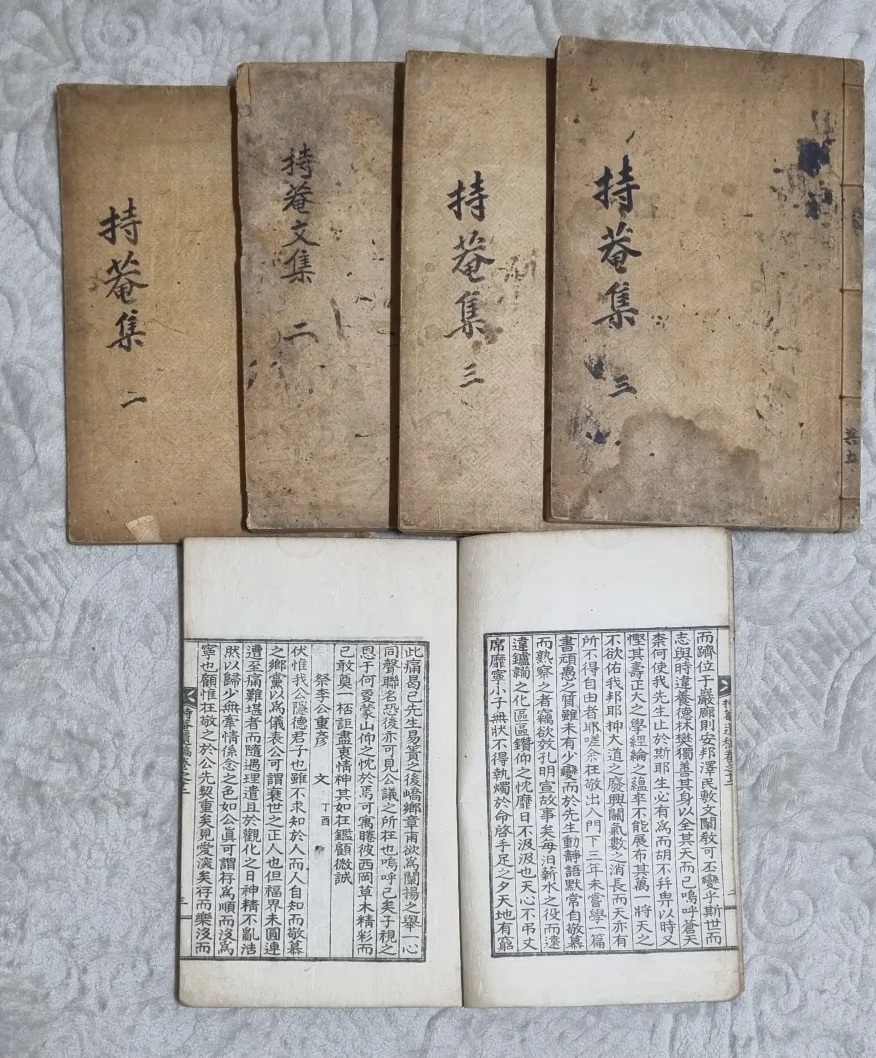 持菴集
二
持菴文集
二
持菴集
三
持菴集
三
共五
而躋位于巖廟則安邦澤民敷文闡敎可丕變乎斯世而
志與時違養德林樊獨善其身以全其天而已嗚呼蒼天
柰何使我先生止於斯耶生必有爲而胡不幷畀以時又
慳其壽正大之學經綸之蘊卒不能展布其萬一將天之
不欲佑我邦耶抑大道之廢興關氣數之消長而天亦有
所不得自由者耶嗟余在敬出入門下三年未嘗學一篇
書頑愚之質雖未有少變而於先生動靜語默常自敬慕
而熟察之者竊欲效孔明宣故事矣每汨薪水之役而遠
違鑪鞴之化區區鑽仰之忱靡日不汲汲也天心不弔丈
席靡寧小子無狀不得執燭於命啓手足之夕天地有窮
此痛曷已先生易簀之後嶠鄕章甫欲爲闡揚之擧一心
同聲聯名恐後亦可見公議之所在也嗚呼已矣子視之
恩于何更蒙山仰之忱於焉可寓睠彼西岡草木精彩而
已敢奠一桮詎盡衷情神其如在鑑顧微誠
祭李公重彥 文 丁酉
伏惟我公隱德君子也雖不求知於人而人自知而敬慕
之鄕黨以爲儀表公可謂衰世之正人也但福界未圓連
遭至痛難堪者而隨遇理遣且於觀化之日神精不亂活
然以歸少無牽情係念之色如公眞可謂存爲順而沒爲
寧也顧惟在敬之於公先契重矣見愛深矣存而樂沒而